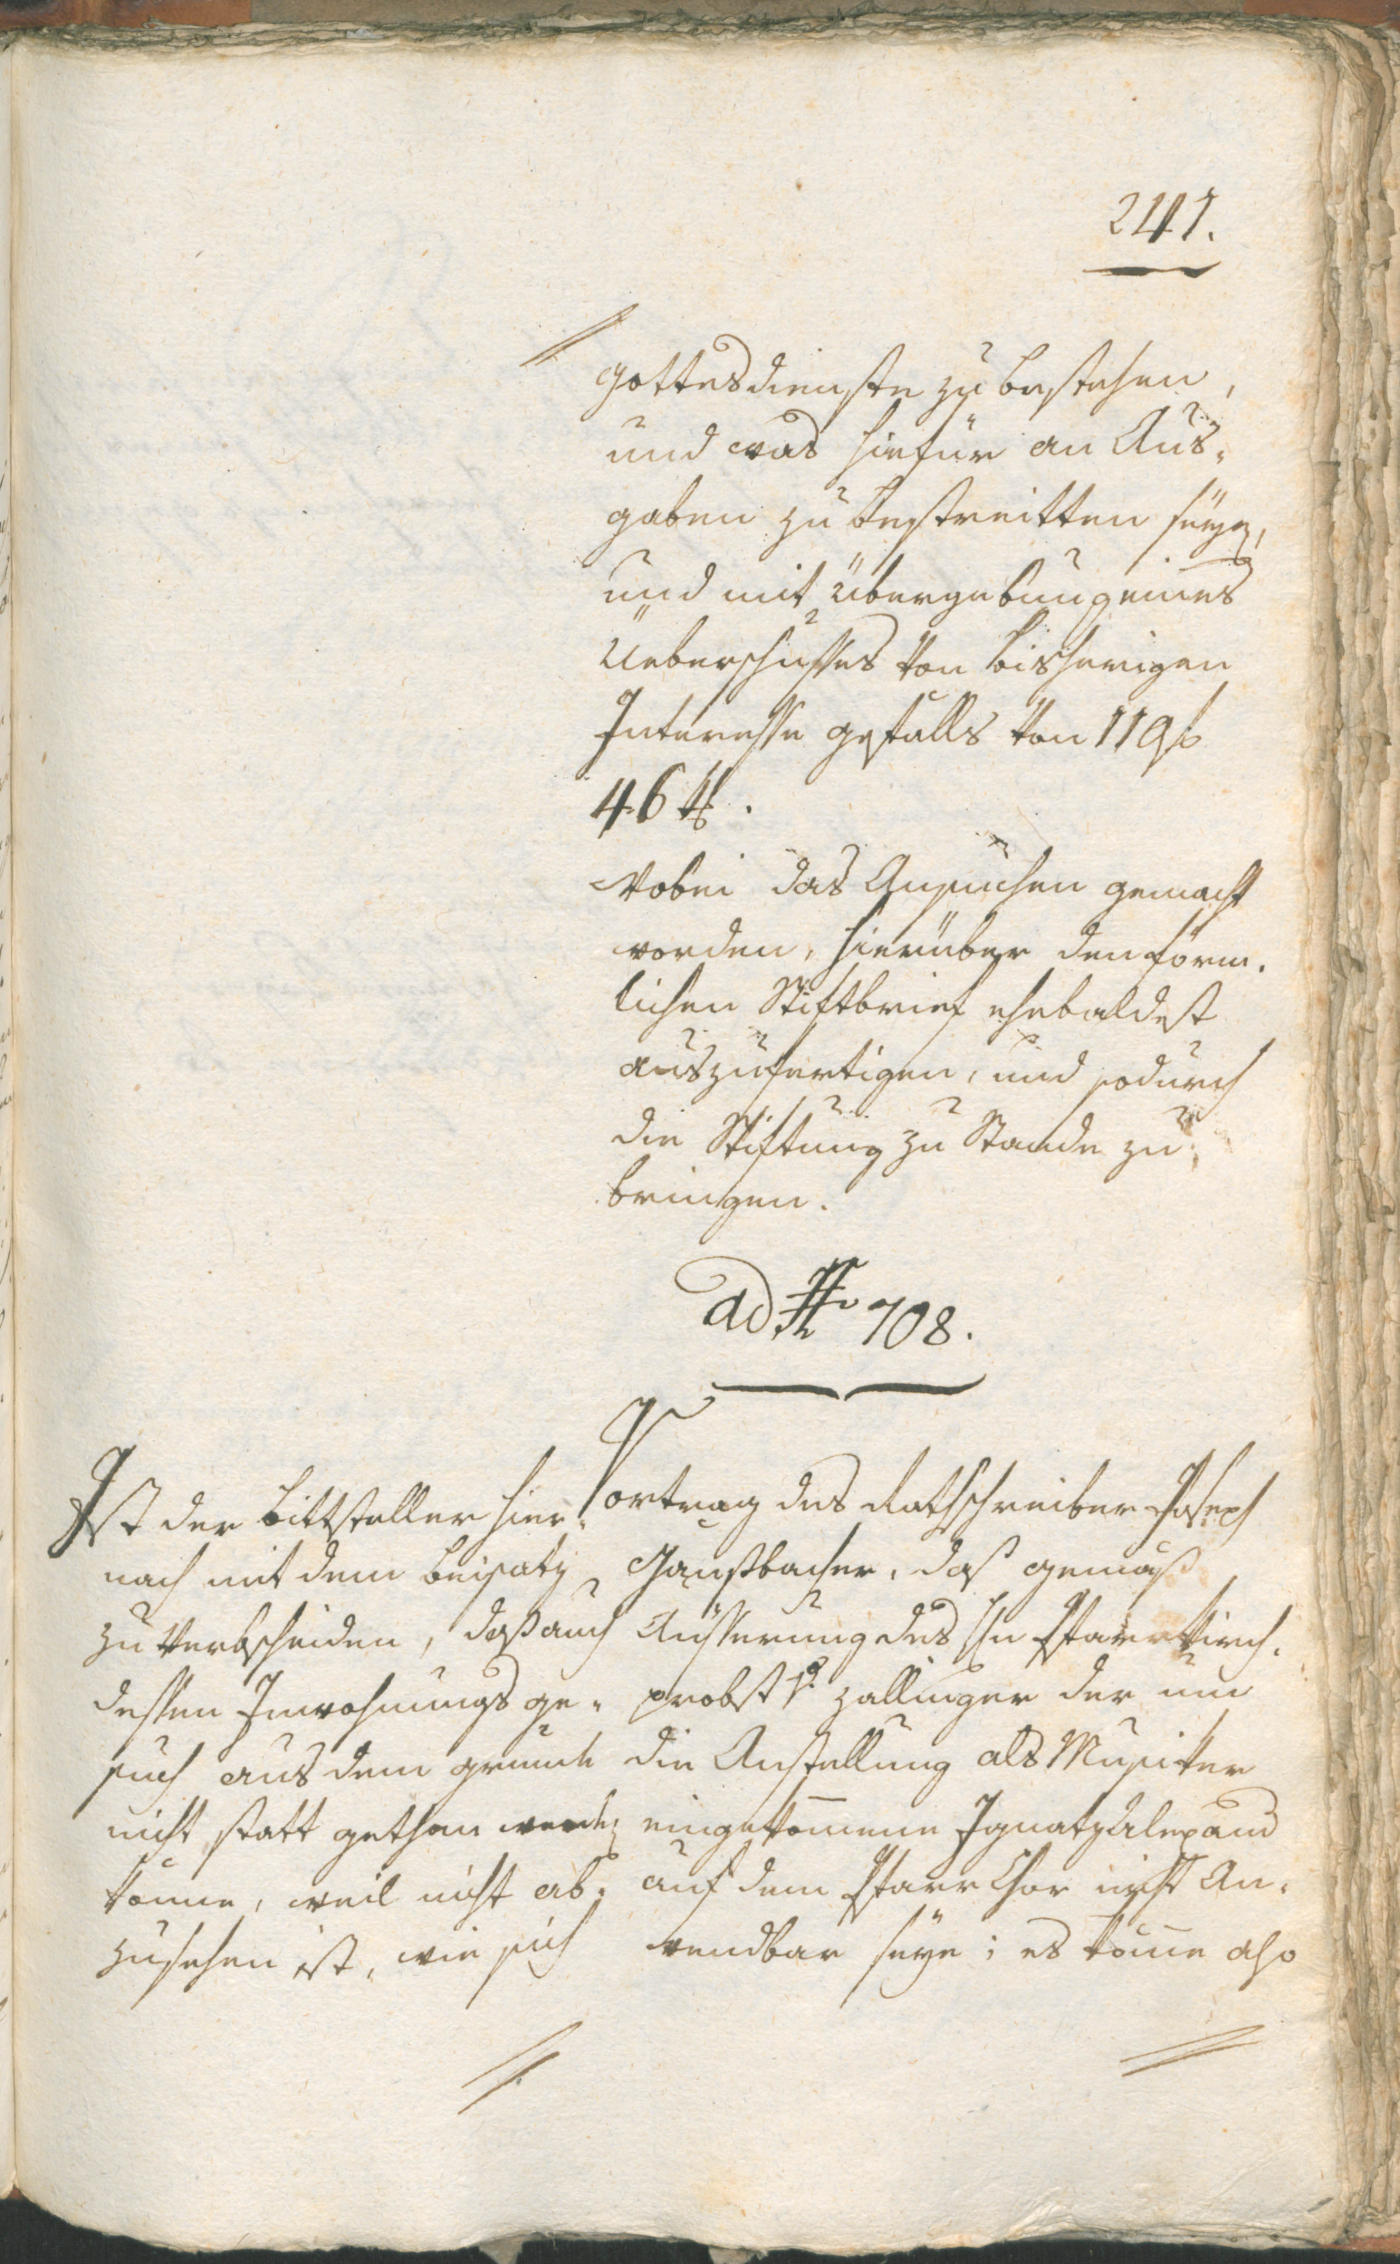 241.
Gottesdienste zu bestehen,
und was hiefür an Aus-
gaben zu bestreitten seye,
und mit übergebung eines
Ueberschußes von bisherigen
Interesse gefälls von 119 f
46 x.
Wobei das Ansuchen gemacht
worden, hierüber den förm-
lichen Stiftbrief ehebaldest
auszufertigen, und sodurch
die Stiftung zu Stande zu
bringen.
ad No 708.
Ist der bittsteller hier-
nach mit dem beisatz
zu verbscheiden, daß auch
dessen Inwohnungs ge-
such aus dem grunde
nicht statt gethan werden
könne, weil nicht ab-
zusehen ist, wie sich
Vortrag des Rathschreiber Joseph
Gansbacher, daß gemäß
Äusserung des Hn Pfarrkirch-
probst v. Zallinger der um
die Anstellung als Musiker
eingekommene Ignatz Alexand
auf dem Pfarr Chor nicht An-
wendbar seye; es könne also